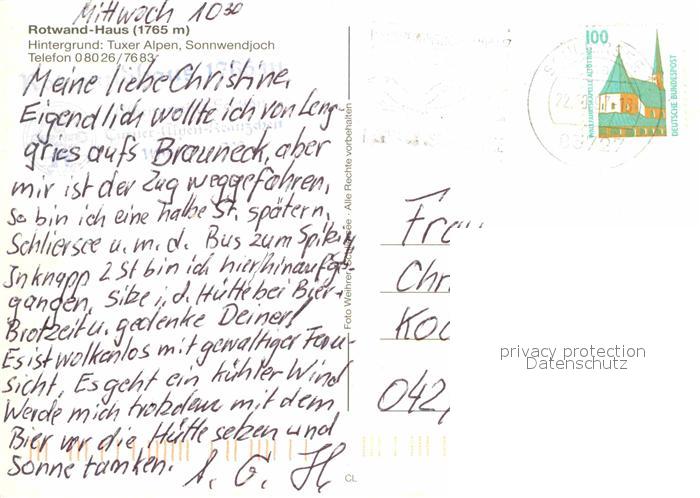 Mittwoch 10³⁰
Rotwand-Haus (1765 m)
Hintergrund: Tuxer Alpen, Sonnwendjoch
Telefon 08026/7683
Meine liebe Christine,
Eigendlich wollte ich von Leng-
gries aufs Brauneck, aber
mir ist der Zug weggefahren,
So bin ich eine halbe St. später n.
Schliersee u. m. d. Bus zum Spitzing
In knapp 2 St bin ich hier hinaufge-
gangen, sitze i. d. Hütte bei Bier-
Brotzeit u. gedenke Deiner!
Es ist wolkenlos mit gewaltiger Fern-
sicht. Es geht ein kühler Wind
Werde mich trotzdem mit dem
Bier vor die Hütte setzen und
Sonne tanken.
Foto Weihrer, Schliersee · Alle Rechte vorbehalten
CL
100
WALLFAHRTSKAPELLE ALTÖTTING
DEUTSCHE BUNDESPOST
Chr
042
privacy protection
Datenschutz